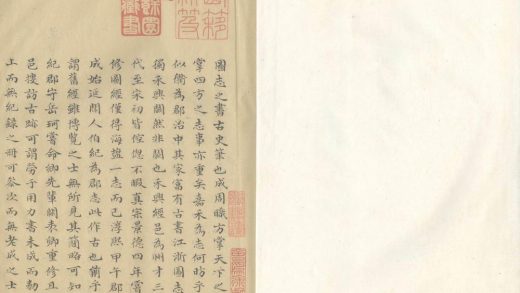 圖志之書古史筆也成周職方掌天下之
掌四方之志事亦重矣嘉禾為志何昉乎
似衢為郡治中其家富有古書江浙圖志
獨禾興闕然非闕也禾興經邑為州才三
代至宋初皆倥傯不暇真宗景德四年嘗
修圖經僅得海鹽一志而已淳熙甲午郡
成始延聞人伯紀為郡志此作古也乎
謂舊經雖博覽之士無所見其簡略可知
紀郡守岳珂嘗命鄉先輩關表卿重修且
邑搜訪古跡可謂勞于用力書未成而
上而無紀錄之冊可參次而無老成之士